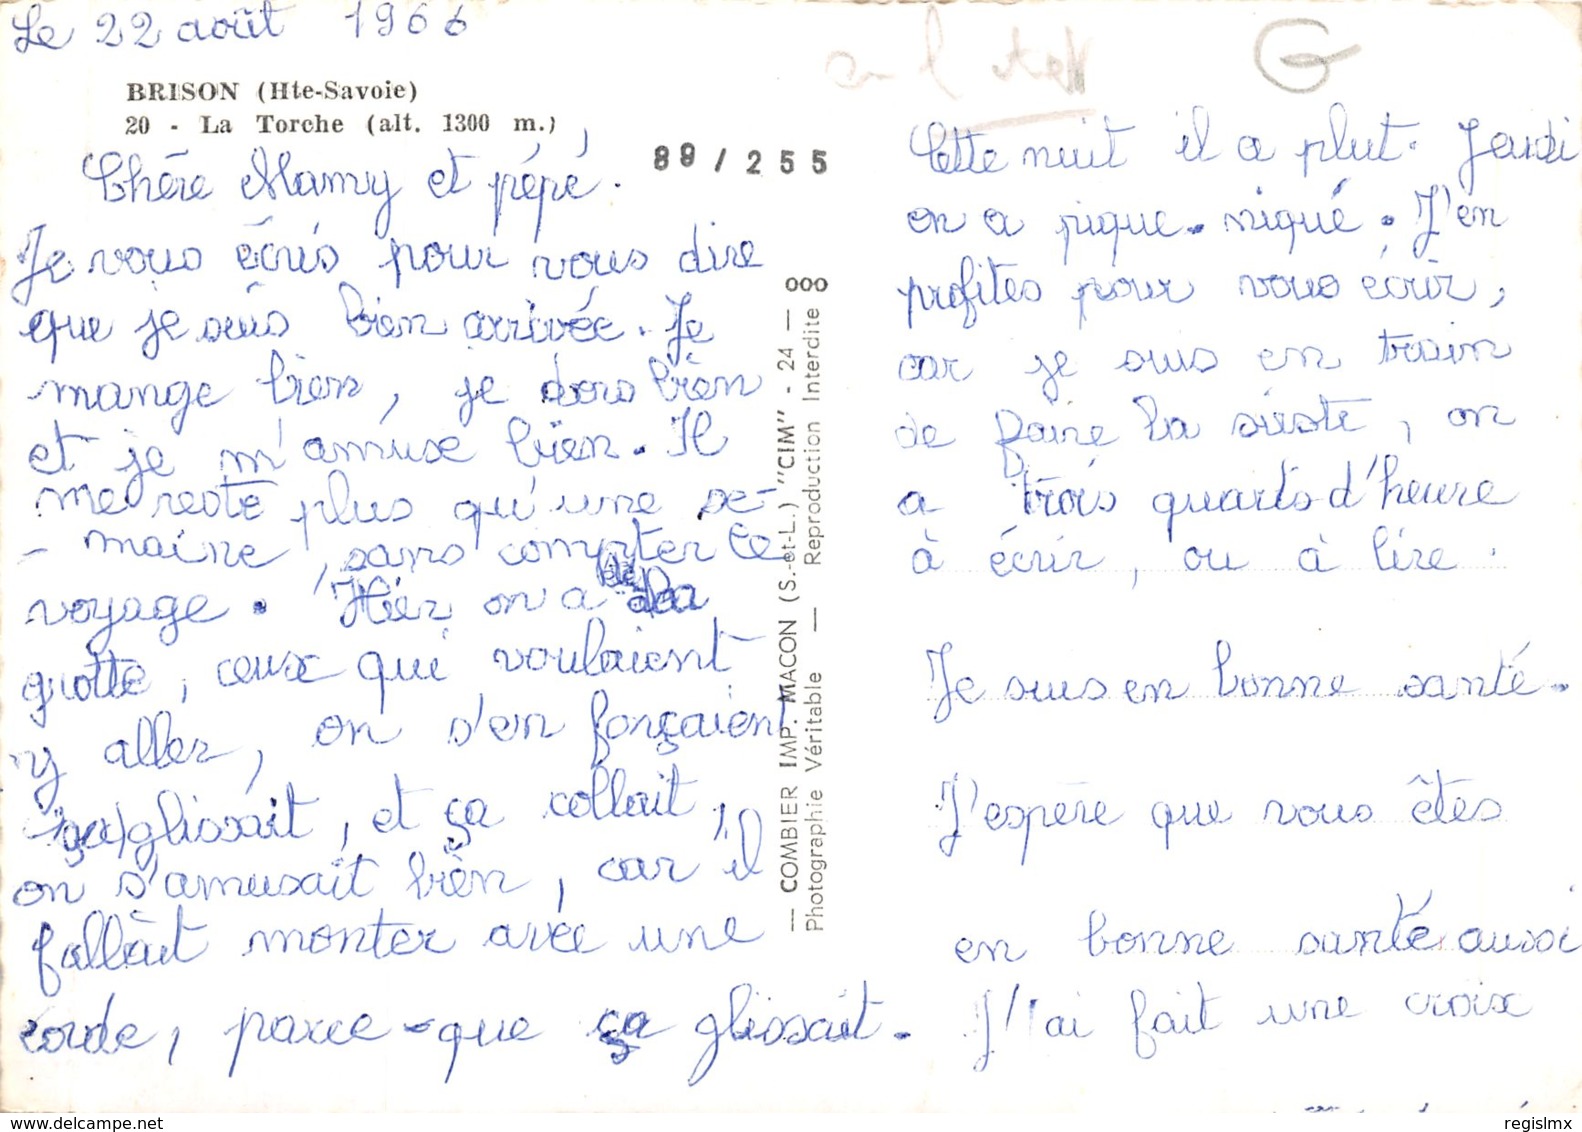 Le 22 août 1966
BRISON (Hte-Savoie)
20 - La Torche (alt. 1300 m.)
Chère Mamy et pépé.
Je vous écris pour vous dire
que je suis bien arrivée. Je
mange bien, je dors bien
et je m'amuse bien. Il
me reste plus qu'une se-
- maine, sans compter le
voyage. Hier on a été la
grotte, ceux qui voulaient
y aller, on s'en fonçaient
ça glissait, et ça collait,
on s'amusait bien, car il
fallait monter avec une
corde, parce-que ça glissait.
88 / 255
— COMBIER IMP. MACON (S.-et-L.) "CIM" - 24 — 000
Photographie Véritable — Reproduction Interdite
G
Cette nuit il a plut. Jeudi
on a pique-niqué. J'en
profites pour vous écrir,
car je suis en train
de faire la sieste, on
a trois quarts d'heure
à écrir, ou à lire.
Je suis en bonne santé.
J'espère que vous êtes
en bonne santé aussi
J'ai fait une croix
regislmx